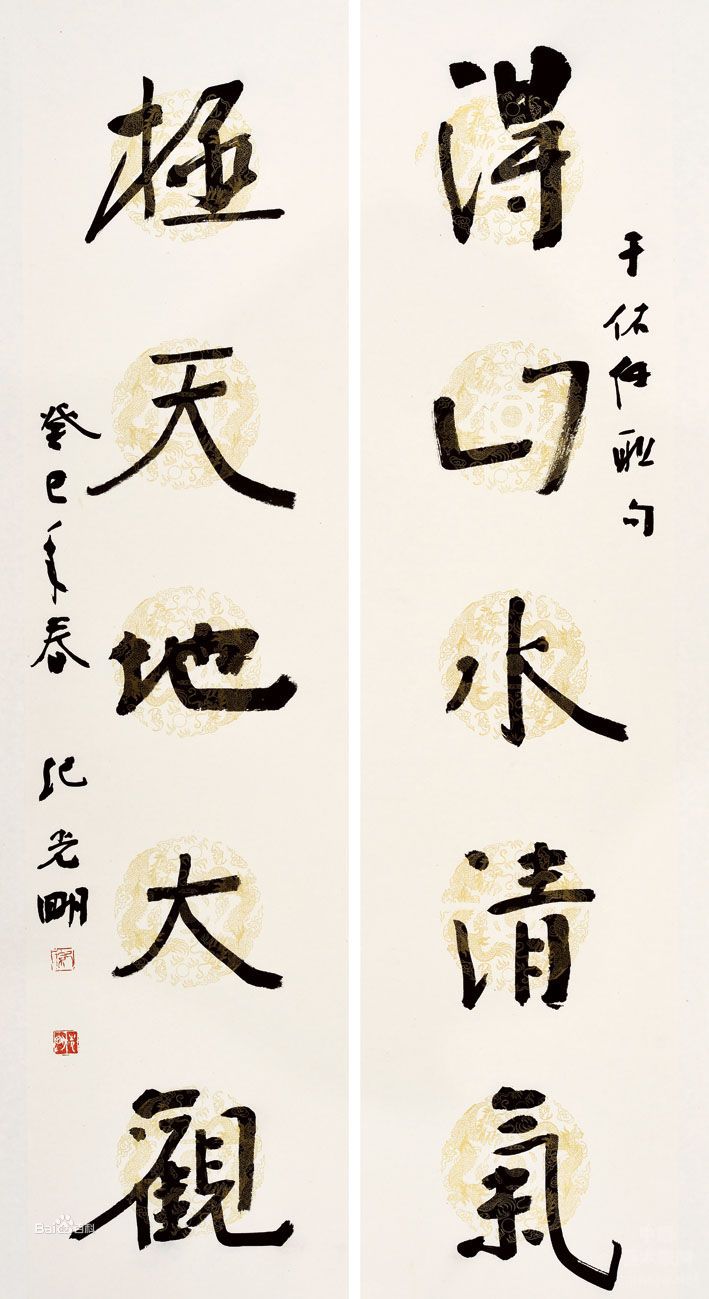 于佑任联句
得山水清氣
極天地大觀
癸巳年春 纪光明
Baidu百科